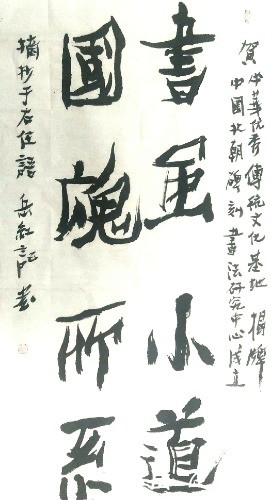 賀中華优秀傳統文化基地揭牌
中国北朝碑刻書法研究中心成立
書虽小道
國魂所系
摘抄于右任語 岳紅記書